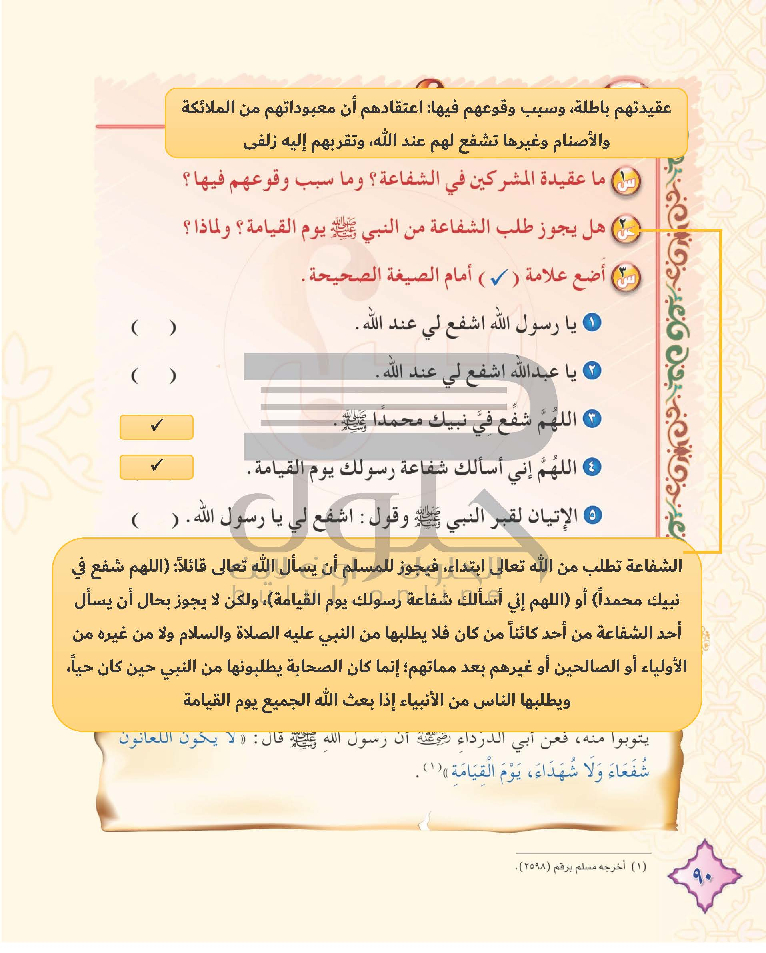 عقيدتهم باطلة، وسبب وقوعهم فيها: اعتقادهم أن معبوداتهم من الملائكة
والأصنام وغيرها تشفع لهم عند الله، وتقربهم إليه زلفى
س١ ما عقيدة المشركين في الشفاعة؟ وما سبب وقوعهم فيها؟
س٢ هل يجوز طلب الشفاعة من النبي ﷺ يوم القيامة؟ ولماذا؟
س٣ أضع علامة (✓) أمام الصيغة الصحيحة.
١ يا رسول الله اشفع لي عند الله. ( )
٢ يا عبدالله اشفع لي عند الله. ( )
٣ اللهُمَّ شفِّع فِيَّ نبيك محمدًا ﷺ. ✓
٤ اللهُمَّ إني أسألك شفاعة رسولك يوم القيامة. ✓
٥ الإتيان لقبر النبي ﷺ وقول: اشفع لي يا رسول الله. ( )
حلول
الحلول أون لاين
hulul.online
الشفاعة تطلب من الله تعالى ابتداء، فيجوز للمسلم أن يسأل الله تعالى قائلاً: (اللهم شفع في
نبيك محمداً) أو (اللهم إني أسألك شفاعة رسولك يوم القيامة)، ولكن لا يجوز بحال أن يسأل
أحد الشفاعة من أحد كائناً من كان فلا يطلبها من النبي عليه الصلاة والسلام ولا من غيره من
الأولياء أو الصالحين أو غيرهم بعد مماتهم؛ إنما كان الصحابة يطلبونها من النبي حين كان حياً،
ويطلبها الناس من الأنبياء إذا بعث الله الجميع يوم القيامة
يتوبوا منه، فعن أبي الدرداءِ رضي الله عنه أن رسول اللهِ ﷺ قال: «لا يكون اللعانون
شُفَعَاءَ وَلَا شُهَدَاءَ، يَوْمَ الْقِيَامَةِ»(١).
(١) أخرجه مسلم برقم (٢٥٩٨).
٩٠